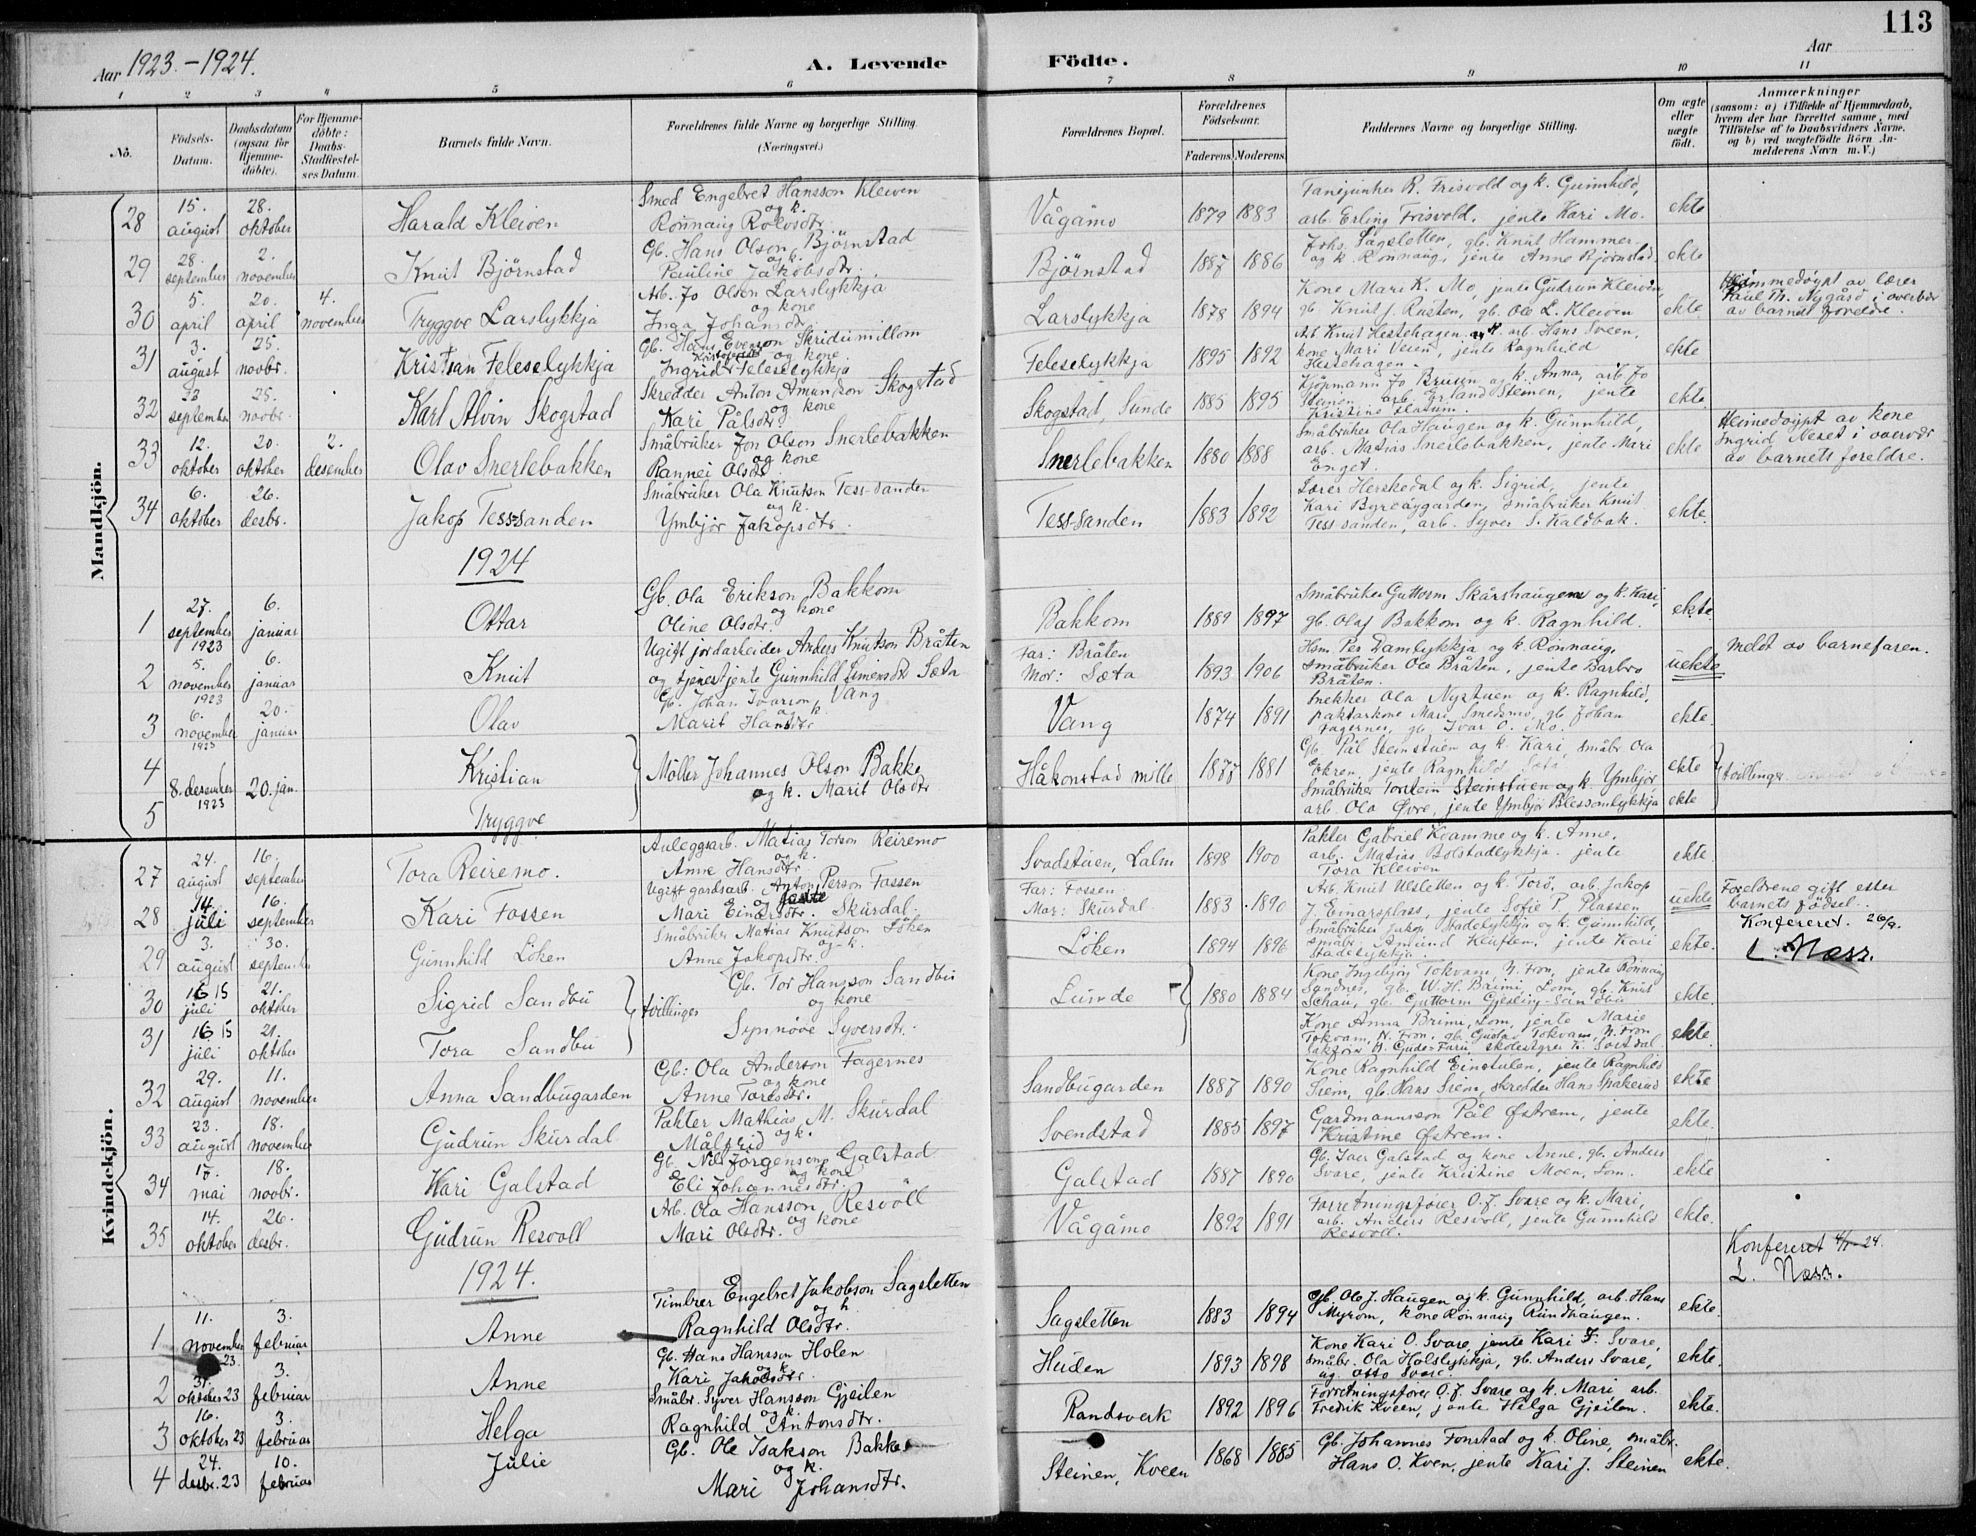 113
Aar 1923.-1924.
A. Levende Födte.
Aar
1 2 3 4 5 6 7 8 9 10 11
No. Födsels-Datum. Daabsdatum (ogsaa for Hjemme-döbte). For Hjemme-döbte: Daabs-Stadfæstel-ses Datum. Barnets fulde Navn. Forældrenes fulde Navne og borgerlige Stilling. (Næringsvei.) Forældrenes Bopæl. Forældrenes Födselsaar. Faderens Moderens Faddernes Navne og borgerlige Stilling. Om ægte eller uægte födt. Anmærkninger (saasom: a) i Tilfælde af Hjemmedaab, hvem der har forrettet samme, med Tilföielse af to Daabsvidners Navne, og b) ved uægtefödte Börn An-melderens Navn m. V.)
Mandkjön.
28 15. august 28. oktober Harald Kleiven Smed Engebret Hansson Kleiven og k. Rönnaug Rolvsdtr. Vågåmo 1879 1883 R. Frisvold og k. Gunnhild, arb. Erling Frisvold, jente Kari Mo. ekte
29 28. september 2. november Knut Bjørnstad Gb. Hans Olson Björnstad og k. Pauline Jakobsdtr. Bjørnstad 1887 1886 Johs. Sagsletten, gb. Knut Hammer og k. Rönnaug, jente Anne Bjørnstad. ekte
30 5. april 20. april 4. november Tryggve Larslykkja Arb. Jo Olson Larslykkja og kone Inga Johansdtr. Larslykkja 1878 1894 Kone Mari K. Mo, jente Gudrun Kleiven, gb. Knut J. Rusten, gb. Ole L. Kleiven ekte. Heimmedöypt av lærer Paul Th. Nygård i overvær av barnets foreldre.
31 3. august 25. novbr. Kristian Feleselykkja Gb. Hans Evenson Skridumillom og kone Ingrid Kristofersdtr Feleselykkja Feleselykkja 1895 1892 Arb. Knut Hestehagen og k. arb. Hans Sveen, kone Mari Veien, jente Ragnhild Hestehagen. ekte
32 23 september 25. novbr. Karl Alvin Skogstad Skredder Anton Amundson Skogstad og kone Kari Pålsdtr. Skogstad, Sunde 1885 1895 Kjöpmann Jo Bruun og k. Anna, arb. Jo Steinen, arb. Erland Steinen, jente Kristine Slatum. ekte
33 12. oktober 20. oktober 2. desember Olav Snerlebakken Småbruker Jon Olson Snerlebakken og kone Rannei Olsdtr. Snerlebakken 1880 1888 Småbruker Ola Haugen og k. Gunnhild, arb. Matias Snerlebakken, jente Mari Enget. ekte Heimedöypt av kone Ingrid Neset i overvær av barnets foreldre.
34 6. oktober 26. desbr. Jakop Tess-sanden Småbruker Ola Knutson Tess-sanden og k. Ymbjør Jakopsdtr. Tess-sanden 1883 1892 Lærer Herskedal og k. Sigrid, jente Kari Byreøygarden, småbruker Knut Tess sanden, arb. Syver S. Kaldbak. ekte.
1924
1 27. september 1923 6. januar Ottar Gb. Ola Erikson Bakkom og kone Oline Olsdtr. Bakkom 1889 1897 Småbruker Guttorm Skårshaugen og k. Kari, gb. Olaf Bakkom og k. Ragnhild. ekte.
2 5. november 1923 6. januar Knut Ugift jordarbeider Anders Knutson Bråten og tjenestjente Gunnhild Simensdtr Sæta Far: Bråten Mor: Sæta 1893 1906 Hsm. Per Damlykkja og k. Rönnaug, småbruker Ole Bråten, jente Barbro Bråten. uekte meldt av barnefaren.
3 6. november 1923 20. januar Olav Gb. Johan Ivarson Vang og k Marit Hansdtr Vang 1874 1891 Snekker Ola Nystuen og k. Ragnhild, paktarkone Mari Smedsmo, gb. Johan Fagernes, gb. Ivar O. Mo. ekte.
4 Kristian Möller Johannes Olson Bakke og k. Marit Olsdtr Håkonstad mille 1877 1881 Gb. Pål Steinstuen og k. Kari, småbr. Ola Ekren, jente Ragnhild ekte tvillinger
5 8. desember 1923 20. jan. Tryggve Småbruker Torstein Steinstuen og k. Ymbjør, arb. Ola Øvre, jente Ymbjør Blessomlykkja ekte
Kvindekjön.
27 24. august 16. september Tora Reiremo. Anleggsarb. Matias Torson Reiremo og k. Anne Hansdtr Svadstuen, Lalm 1898 1900 Pakter Gabriel Kvamme og k. Anne, arb. Matias Bolstadlykkja. jente Tora Kleiven ekte.
28 14. juli 16. september Kari Fossen Ugift gardsarb. Anton Person Fossen og jente Mari Einarsdtr. Skurdal. Far: Fossen. Mor: Skurdal. 1883 1890 Arb. Knut Ulsletten og k. Torø, arb. Jakop J. Einarsplass, jente Sofie P. Plassen uekte Foreldrene gift etter barnets födsel. Konfereret 26/9.
29 3. august 30. september Gunnhild Löken Småbruker Matias Knutson Löken og k. Anne Jakopsdtr. Löken 1894 1896 Småbruker Jakop Stadelykkja og k. Gunnhild, småbr. Amund Kluften, jente Kari Stadelykkja. ekte. L. Næss.
30 16 15 juli 21. oktober Sigrid Sandbu tvillinger Gb. Tor Hansson Sandbu og kone Synnöve Syversdtr. Lunde 1880 1884 Kone Ingebjørg Tokvam, N. Fron, jente Rönnaug Sandnes, gb. W. H. Brimi, Lom, gb. Knut Schau, gb. Guttorm Gjesling-Sandbu ekte.
31 16 15 juli 21. oktober Tora Sandbu Kone Anna Brimi, Lom, jente Marie Tokvam, N. Fron, gb. Gustav Tokvam, N. Fron ekte.
32 29. august 11. november Anna Sandbugarden Gb: Ola Anderson Fagernes og kone Anne Toresdtr. Sandbugarden 1887 1890 Kone Ragnhild Einstulen, jente Ragnhild Siem, gb. Hans Siem, skredder Hans Spakerud ekte
33 23. august 18. november Gudrun Skurdal Pakter Mathias M. Skurdal og k. Målfrid Svendstad 1885 1897 Gardmannsson Pål Østrem, jente Kristine Østrem. ekte.
34 17 mai 18. novbr. Kari Galstad Gb. Nils Jørgenson Galstad og kone Eli Johannesdtr. Galstad 1887 1890 Gb. Iver Galstad og kone Anne, gb. Anders Svare, jente Kristine Moen, Lom. ekte
35 14. oktober 26. desbr. Gudrun Resvoll Arb. Ola Hansson Resvöll og kone Mari Olsdtr. Vågåmo 1892 1891 Forretningsfører O. J. Svare og k. Mari, arb. Anders Resvoll, jente Gunnhild Resvoll. ekte.
Konfereret 4/1-24.
L. Næss.
1924.
1 11. november 23. 3. februar Anne Timbrer Engebret Jakobson Sagsletten og k. Ragnhild Olsdtr. Sagsletten 1883 1894 Gb. Ole J. Haugen og k. Gunnhild, arb. Hans Myrom, kone Rønnaug Rundhaugen. ekte.
2 31. oktober 23 3. februar Anne Gb. Hans Hansson Holen og k. Kari Jakobsdtr. Huden 1893 1898 Kone Kari O. Svare, jente Kari F. Svare, småbr. Ola Holslykkja, gb. Anders Svare, og Otto Svare. ekte.
3 16. oktober 23 3. februar Helga Småbr. Syver Hansson Gjeilen og k. Ragnhild Antonsdtr. Randsverk 1892 1896 Forretningsfører O. J. Svare og k. Mari arb. Fredrik Kveen, jente Helga Gjeilen. ekte.
4 24. desbr. 23 10. februar Julie Gb. Ole Isakson Bakke og k. Mari Johansdtr. Steinen, Kveen 1868 1885 Gb. Johannes Fonstad og k. Oline, småbr. Hans O. Kven, jente Kari J. Steinen ekte.